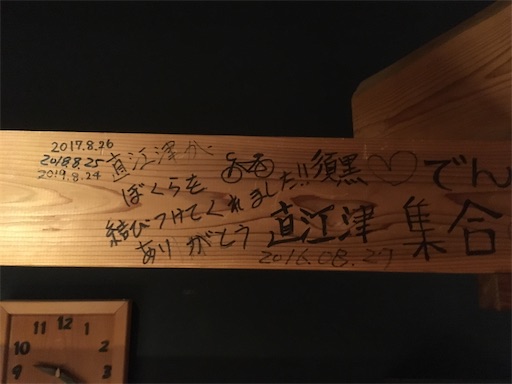 2017.8.26
2018.8.25
2019.8.24
直江津が
ぼくらを
結びつけてくれました!!
ありがとう
須黒♡でん
直江津 集合
2016.08.27
11 12 1
10 2
9 3